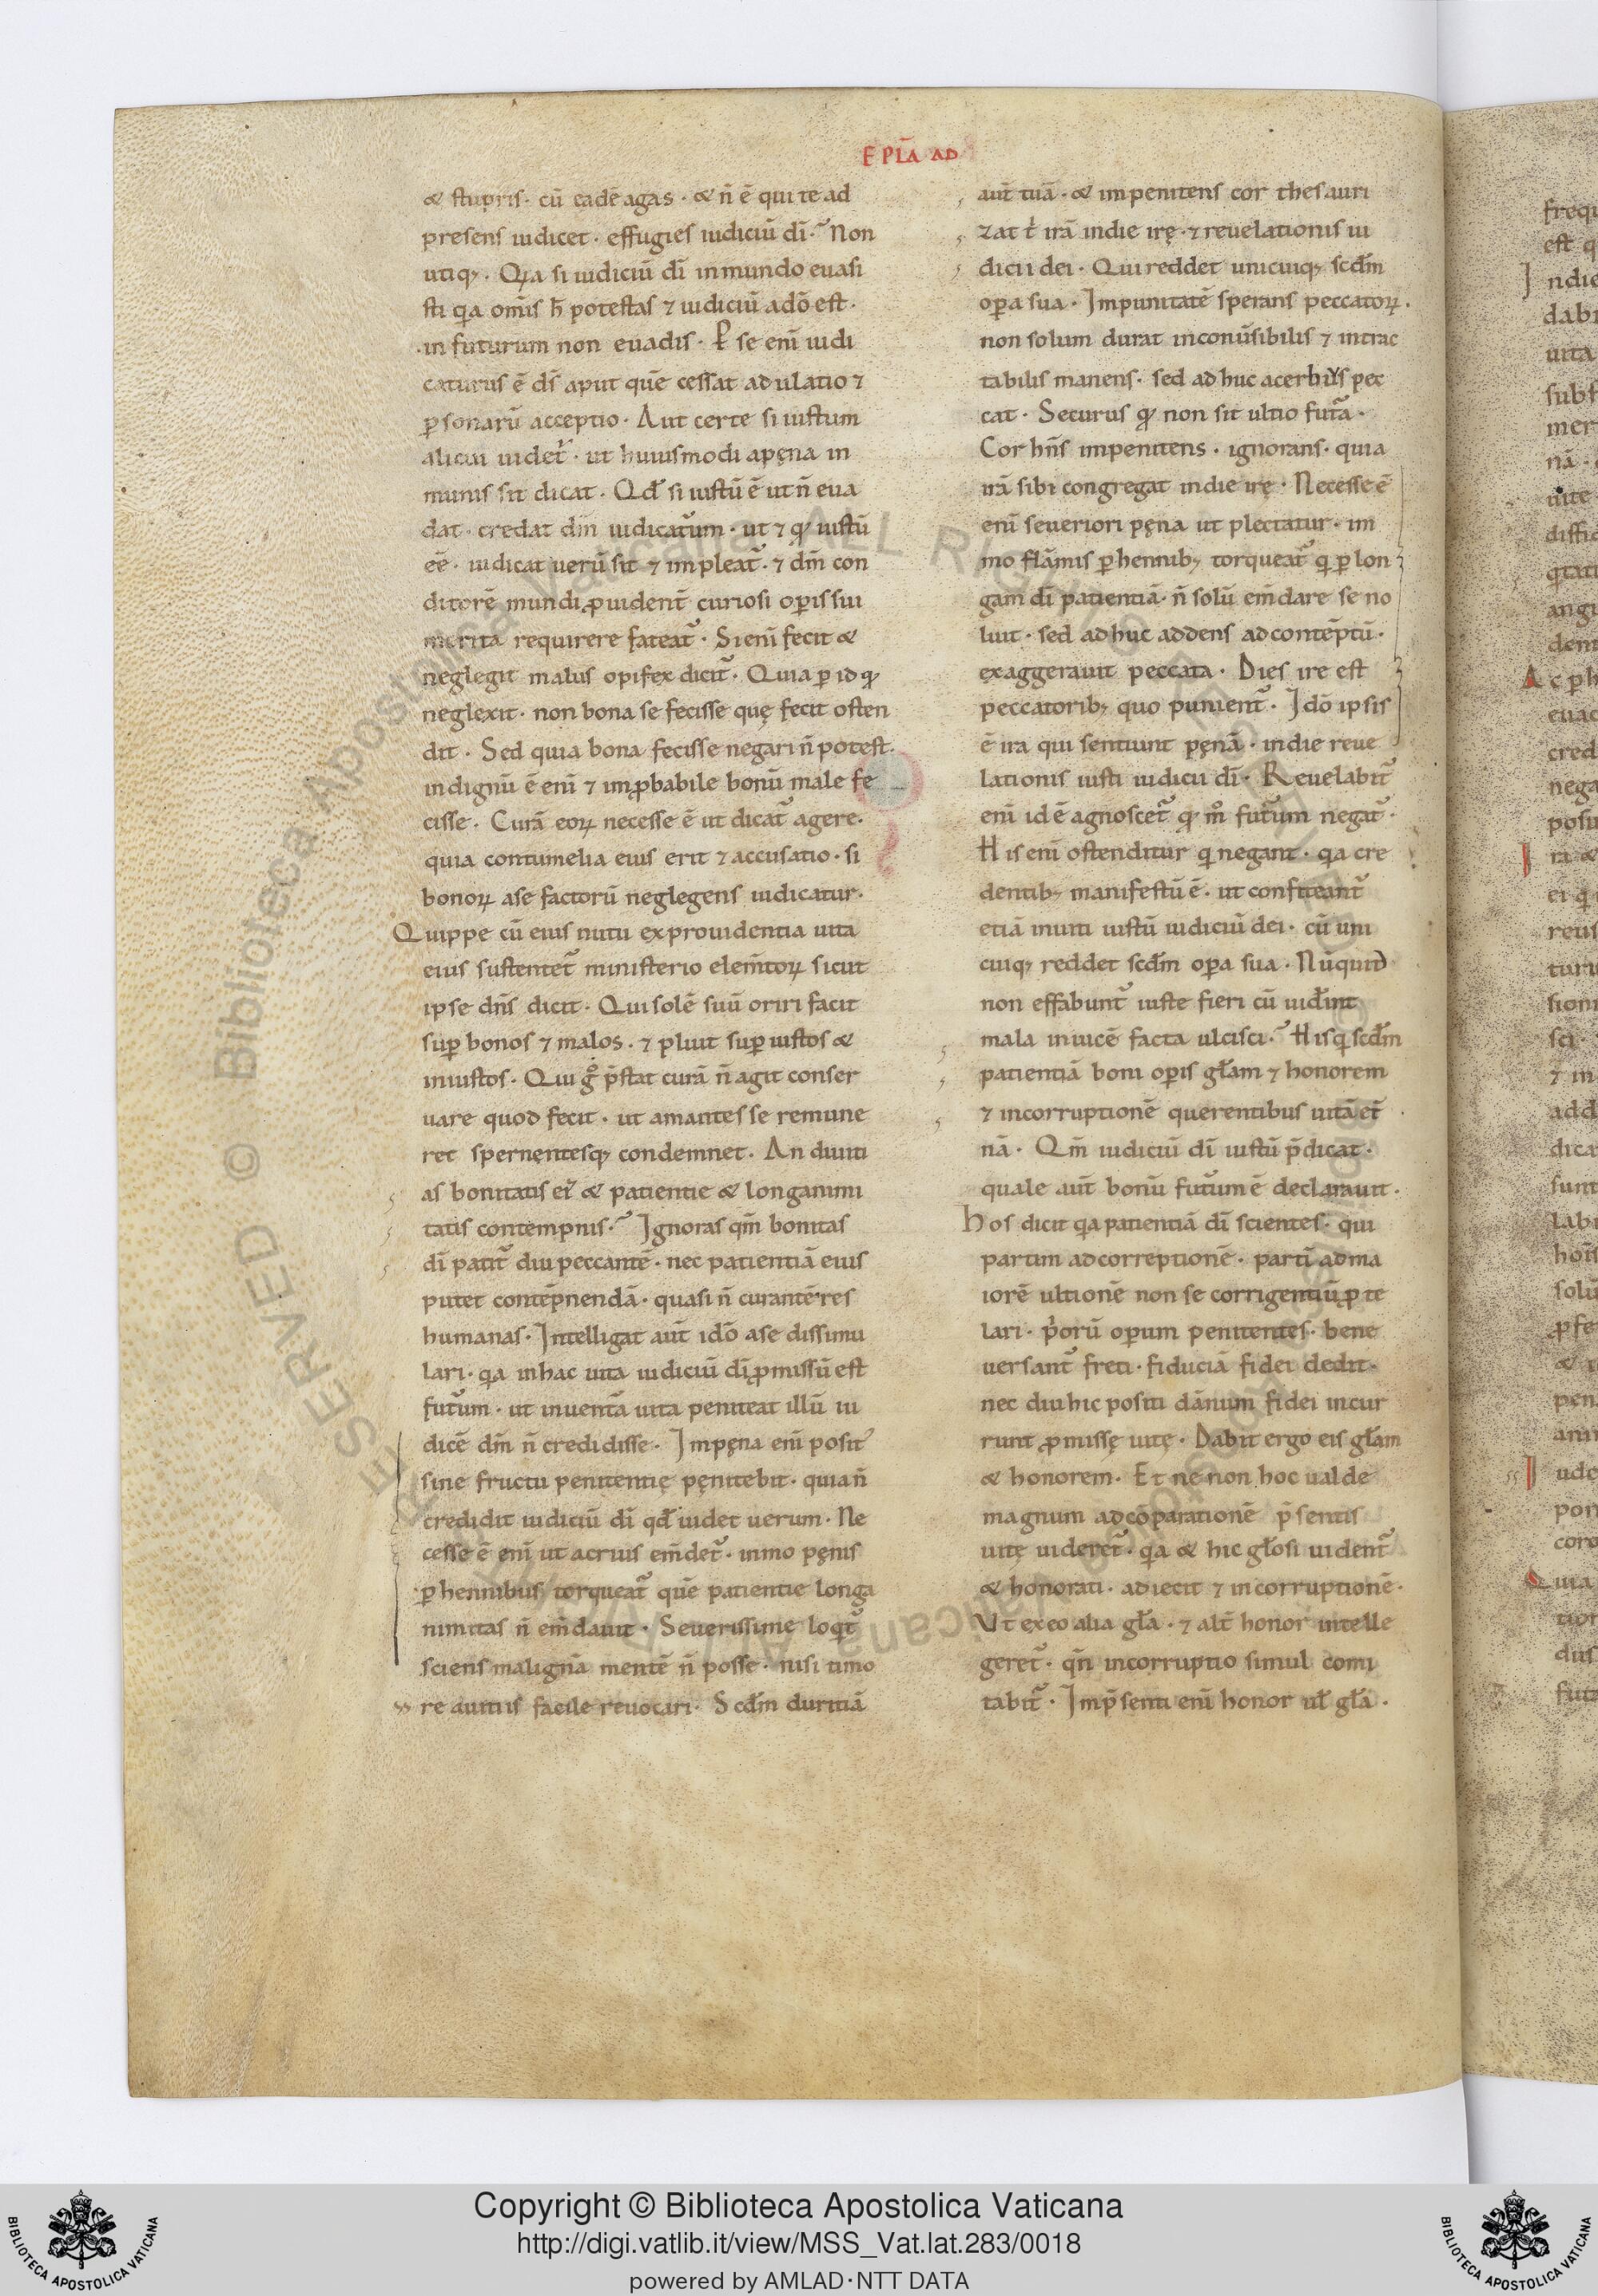 EPLA AD
& stupris· cū eadē agas· & n̄ ē qui te ad
presens iudicet· effugies iudiciū dī·̃ Non
utiq;· Qꝛa si iudiciū dī in mundo euasi
sti qa om̄s h̄ potestas ⁊ iudiciū adō est·
·in futurum non euadis· P̱ se enī iudi
caturus ē ds̄ aput quē cessat adulatio ⁊
ꝑsonarū acceptio· Aut certe si iustum
alicui uidet᷑· ut huiusmodi apęna in
munis sit dicat· Qd̄ si iustū ē ut n̄ eua
dat· credat dm̄ iudicatum· ut ⁊ qd iustū
eē· iudicat uerū sit ⁊ impleat᷑· ⁊ dm̄ con
ditorē mundi ꝓuident̄ curiosi oꝑis sui
merita requirere fateat᷑· Si enī fecit &
neglegit malus opifex dicit᷑· Quia ꝑ id qd
neglexit· non bona se fecisse quę fecit osten
dit· Sed quia bona fecisse negari n̄ potest·
indignū ē enī ⁊ imꝓbabile bonū male fe
cisse· Curā eoꝝ necesse ē ut dicat᷑ agere·
quia contumelia eius erit ⁊ accusatio· si
bonoꝝ ase factorū neglegens iudicatur·
Quippe cū eius nutu ex prouidentia uita
eius sustentet᷑ ministerio elem̄toꝝ sicut
ipse dn̄s dicit· Qui solē suū oriri facit
suꝑ bonos ⁊ malos· ⁊ pluit suꝑ iustos &
iniustos· Qui gͦ p̄stat curā n̄ agit conser
uare quod fecit· ut amantes se remune
ret spernentesq; condemnet· An diuiti
as bonitatis ei᷒ & patientie & longanimi
tatis contempnis·̃ Ignoras qm̄ bonitas
dī patit᷑ diu peccantē· nec patientiā eius
putet contēpnendā· quasi n̄ curantē res
humanas· Intelligat aut̄ idō ase dissimu
lari· qa in hac uita iudiciū dī ꝓmissū est
futum· ut in uenta uita peniteat illū iu
dicē dm̄ n̄ credidisse· In pęna enī posit᷒
sine fructu penitentię pęnitebit· quia n̄
credidit iudiciū dī qd̄ uidet uerum· Ne
cesse ē enī ut acrius em̄det᷑· inmo pęnis
ꝑhennibus torqueat᷑ quē patientie longa
nimitas n̄ em̄dauit· Seuerissime loqt᷑
sciens malignā mentē n̄ posse· nisi timo
re auitiis facile reuocari· Scdm̄ duritiā
aut̄ tuā· & impenitens cor thesauri
zat t̄ irā in die irę· ⁊ reuelationis iu
dicii dei· Qui reddet unicuiq; scdm̄
oꝑa sua· Impunitatē sperans peccatoꝝ·
non solum durat inconūsibilis ⁊ intrac
tabilis manens· sed adhuc acerbius pec
cat· Securus qd non sit ultio futa·
Cor hn̄s impenitens· ignorans· quia
irā sibi congregat in die irę· Necesse ē
enī seueriori pęna ut plectatur· im
mo flāmis ꝑhennib; torqueat᷑ q ꝑ lon
gam dī patientiā· n̄ solū em̄dare se no
luit· sed adhuc addens ad contēptū·
exaggerauit peccata· Dies ire est
peccatorib; quo punient᷑· Idō ipsis
ē ira qui sentiunt pęnā· in die reue
lationis iusti iudicii dī· Reuelabit᷑
enī id ē agnoscet᷑ qd mͦ futum negat᷑·
His enī ostenditur q negant· qa cre
dentib; manifestū ē· ut confiteant᷑
etiā inuiti iustū iudiciū dei· cū uni
cuiq; reddet scdm̄ oꝑa sua· Nūquid
non effabunt᷑ iuste fieri cū uid̄int
mala inuicē facta ulcisci·̃ His q scdm̄
patientiā boni oꝑis gl̄am ⁊ honorem
⁊ incorruptionē querentibus uitā et̄
nā· Qm̄ iudiciū dī iustū p̄dicat·
quale aut̄ bonū futum ē declarauit·
hos dicit qa patientiā dī scientes· qui
partim ad correptionē· partī ad ma
iorē ultionē non se corrigentiū ꝓte
lari· p̍orū oꝑum penitentes· bene
uersant᷑ freti· fiduciā fidei dedit·
nec diu hic positi dānum fidei incur
runt ꝓmissę uitę· Dabit ergo eis gl̄am
& honorem· Et ne non hoc ualde
magnum ad cōparationē p̄sentis
uitę uideret᷑· qa & hic gl̄osi uident᷑
& honorati· adiecit ⁊ incorruptionē·
Ut ex eo alia gl̄a· ⁊ alt̄ honor intelle
geret᷑· qn̄ incorruptio simul comi
tabit᷑· In p̄senti enī honor ul̄ gl̄a·
Copyright © Biblioteca Apostolica Vaticana
http://digi.vatlib.it/view/MSS_Vat.lat.283/0018
powered by AMLAD·NTT DATA